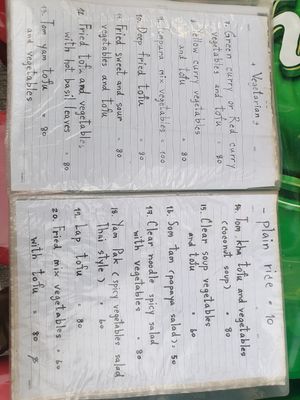 Vegetarian
7. Green curry or Red curry
vegetables and tofu = 80
Yellow curry vegetables
and tofu = 80
Tempura mix vegetables = 100
10. Deep fried tofu 80
11. Fried sweet and sour
vegetables and tofu 80
12. Fried tofu and vegetables
with hot basil leaves = 80
13. Tom yam tofu
and vegetables = 80
- plain rice = 10
14. Tom kha tofu and vegetables
(coconut soup) = 80
15. Clear soup vegetables
and tofu = 60
16. Som tam (papaya salad) = 50
17. Clear noodle spicy salad
with vegetables = 80
18. Yam Pak (spicy vegetables salad
Thai style) = 60
19. Lap tofu = 80
20. Fried mix vegetables = 60
with tofu = 80